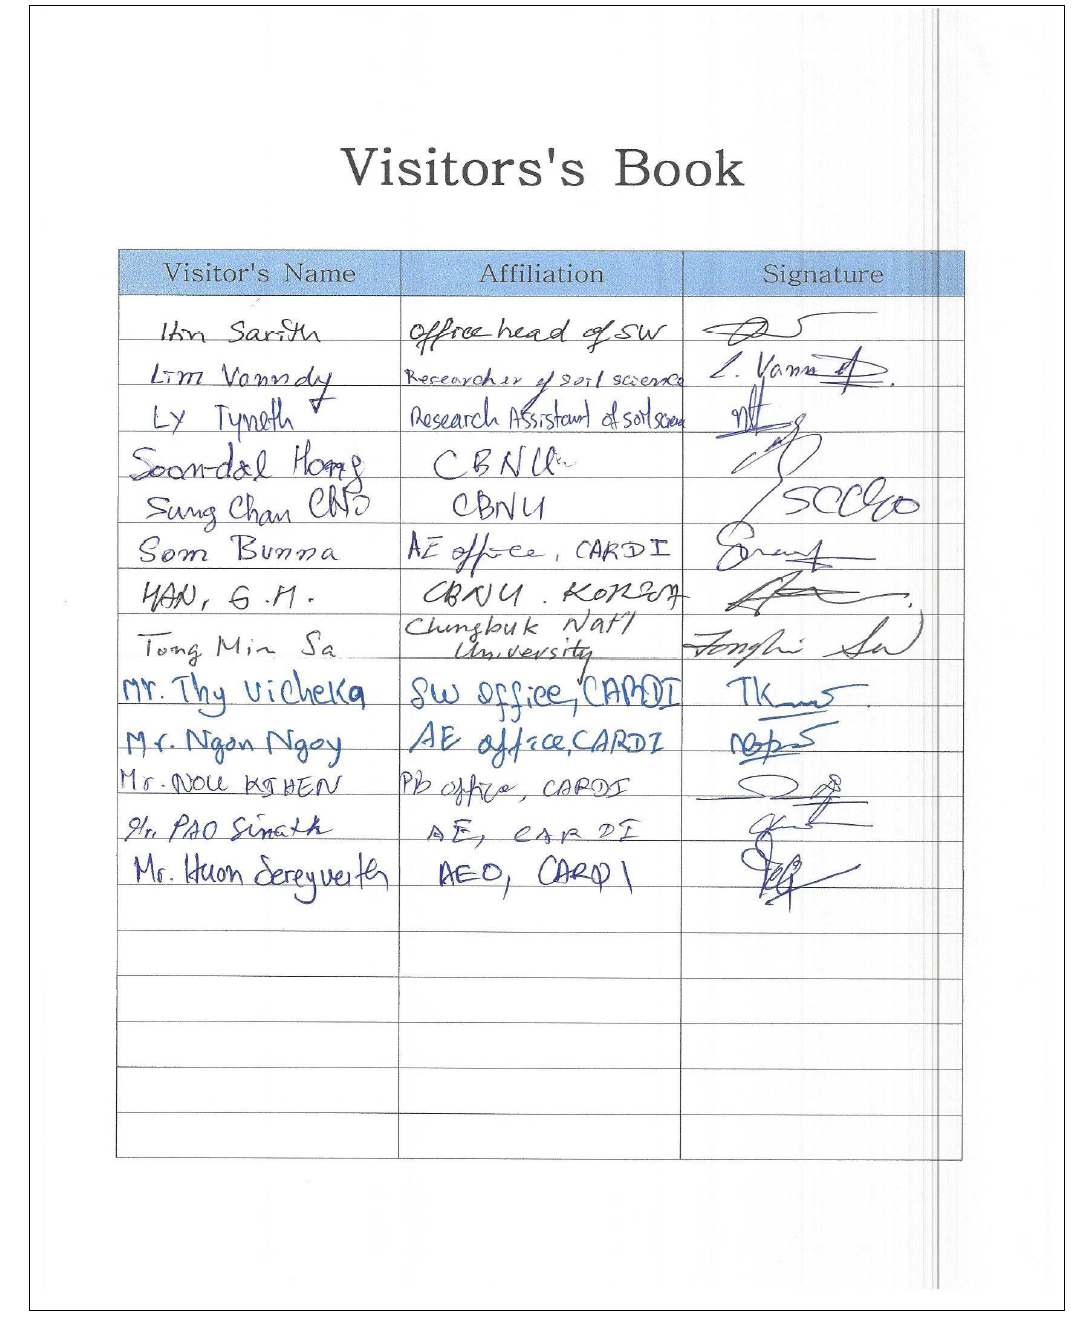 Visitors's Book
Visitor's Name Affiliation Signature
Hin Sarith office head of SW
Lim Vanndy Researcher of soil science L. Vann
Ly Tyneth Research Assistant of soil scien
Soon-dal Hong CBNU
Sung Chan CHO CBNU SCCho
Som Bunna AE office, CARDI
HAN, G.M. CBNU. KOREA
Tong Min Sa Chungbuk Nat'l
University Tongmin Sa
Mr. Thy Vicheka SW office, CARDI TK
Mr. Ngon Ngoy AE office, CARDI
Mr. NOU KSHEN PB office, CARDI
PAO Sinath AE, CARDI
Mr. Huon Sereyveith AEO, CARDI